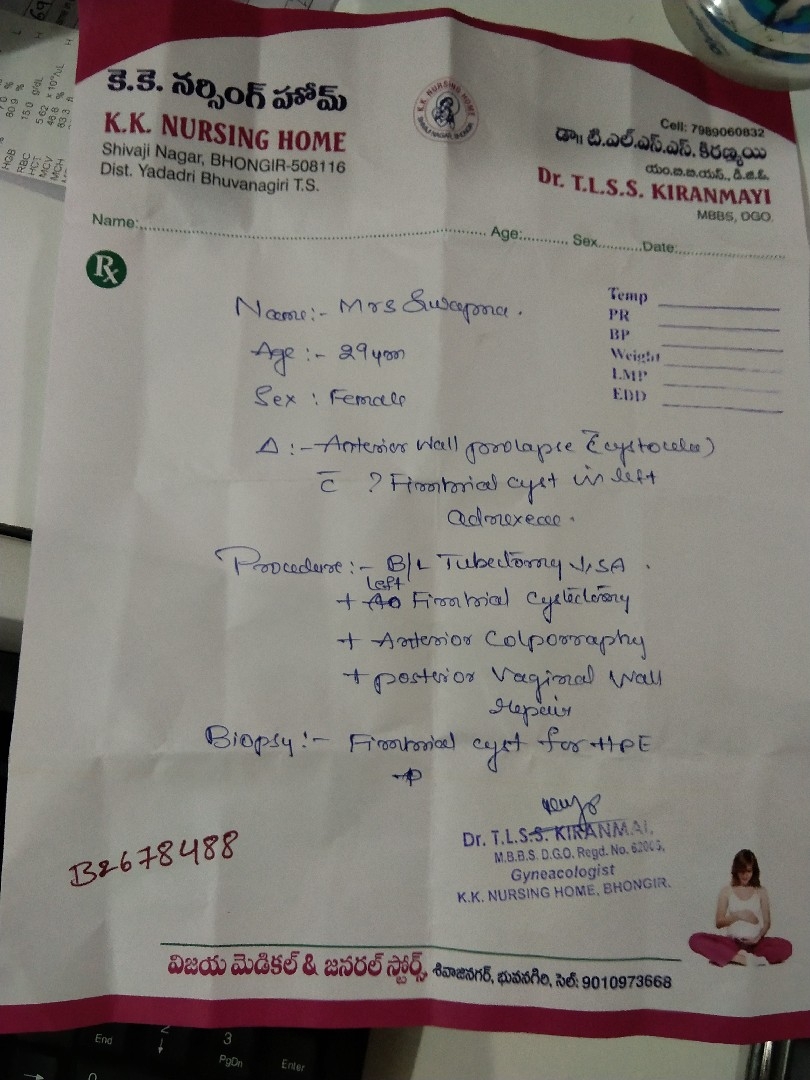 కె.కె. నర్సింగ్ హోమ్
K.K. NURSING HOME
Shivaji Nagar, BHONGIR-508116
Dist. Yadadri Bhuvanagiri T.S.
K.K. NURSING HOME
Cell: 7989060832
డా॥ టి.ఎల్.ఎస్.ఎస్. కిరణ్మయి
యం.బి.బి.యస్., డి.జి.ఓ.
Dr. T.L.S.S. KIRANMAYI
MBBS, DGO.
Name: Age: Sex Date:
Rx
Temp
PR
BP
Weight
LMP
EDD
Name:- Mrs Swapna.
Age :- 29 year
Sex : Female
Δ :- Anterior Wall prolapse (cystocele)
c̄ ? Fimbrial cyst in left
adnexeae.
Procedure :- B/L Tubectomy ↓SA.
left
+ Fimbrial cystectomy
+ Anterior Colporraphy
+ posterior Vaginal Wall
repair
Biopsy :- Fimbrial cyst for HPE
Dr. T.L.S.S. KIRANMAI,
M.B.B.S. D.G.O. Regd. No.
Gyneacologist
K.K. NURSING HOME, BHONGIR.
B2678488
విజయ మెడికల్ & జనరల్ స్టోర్స్, శివాజీనగర్, భువనగిరి, సెల్: 9010973668
HGB
RBC
HCT
MCV
MCH
80.9 %
15.0 g/dL
46.8 %
83.3
End
2
↓
3
PgDn
Enter
→
0